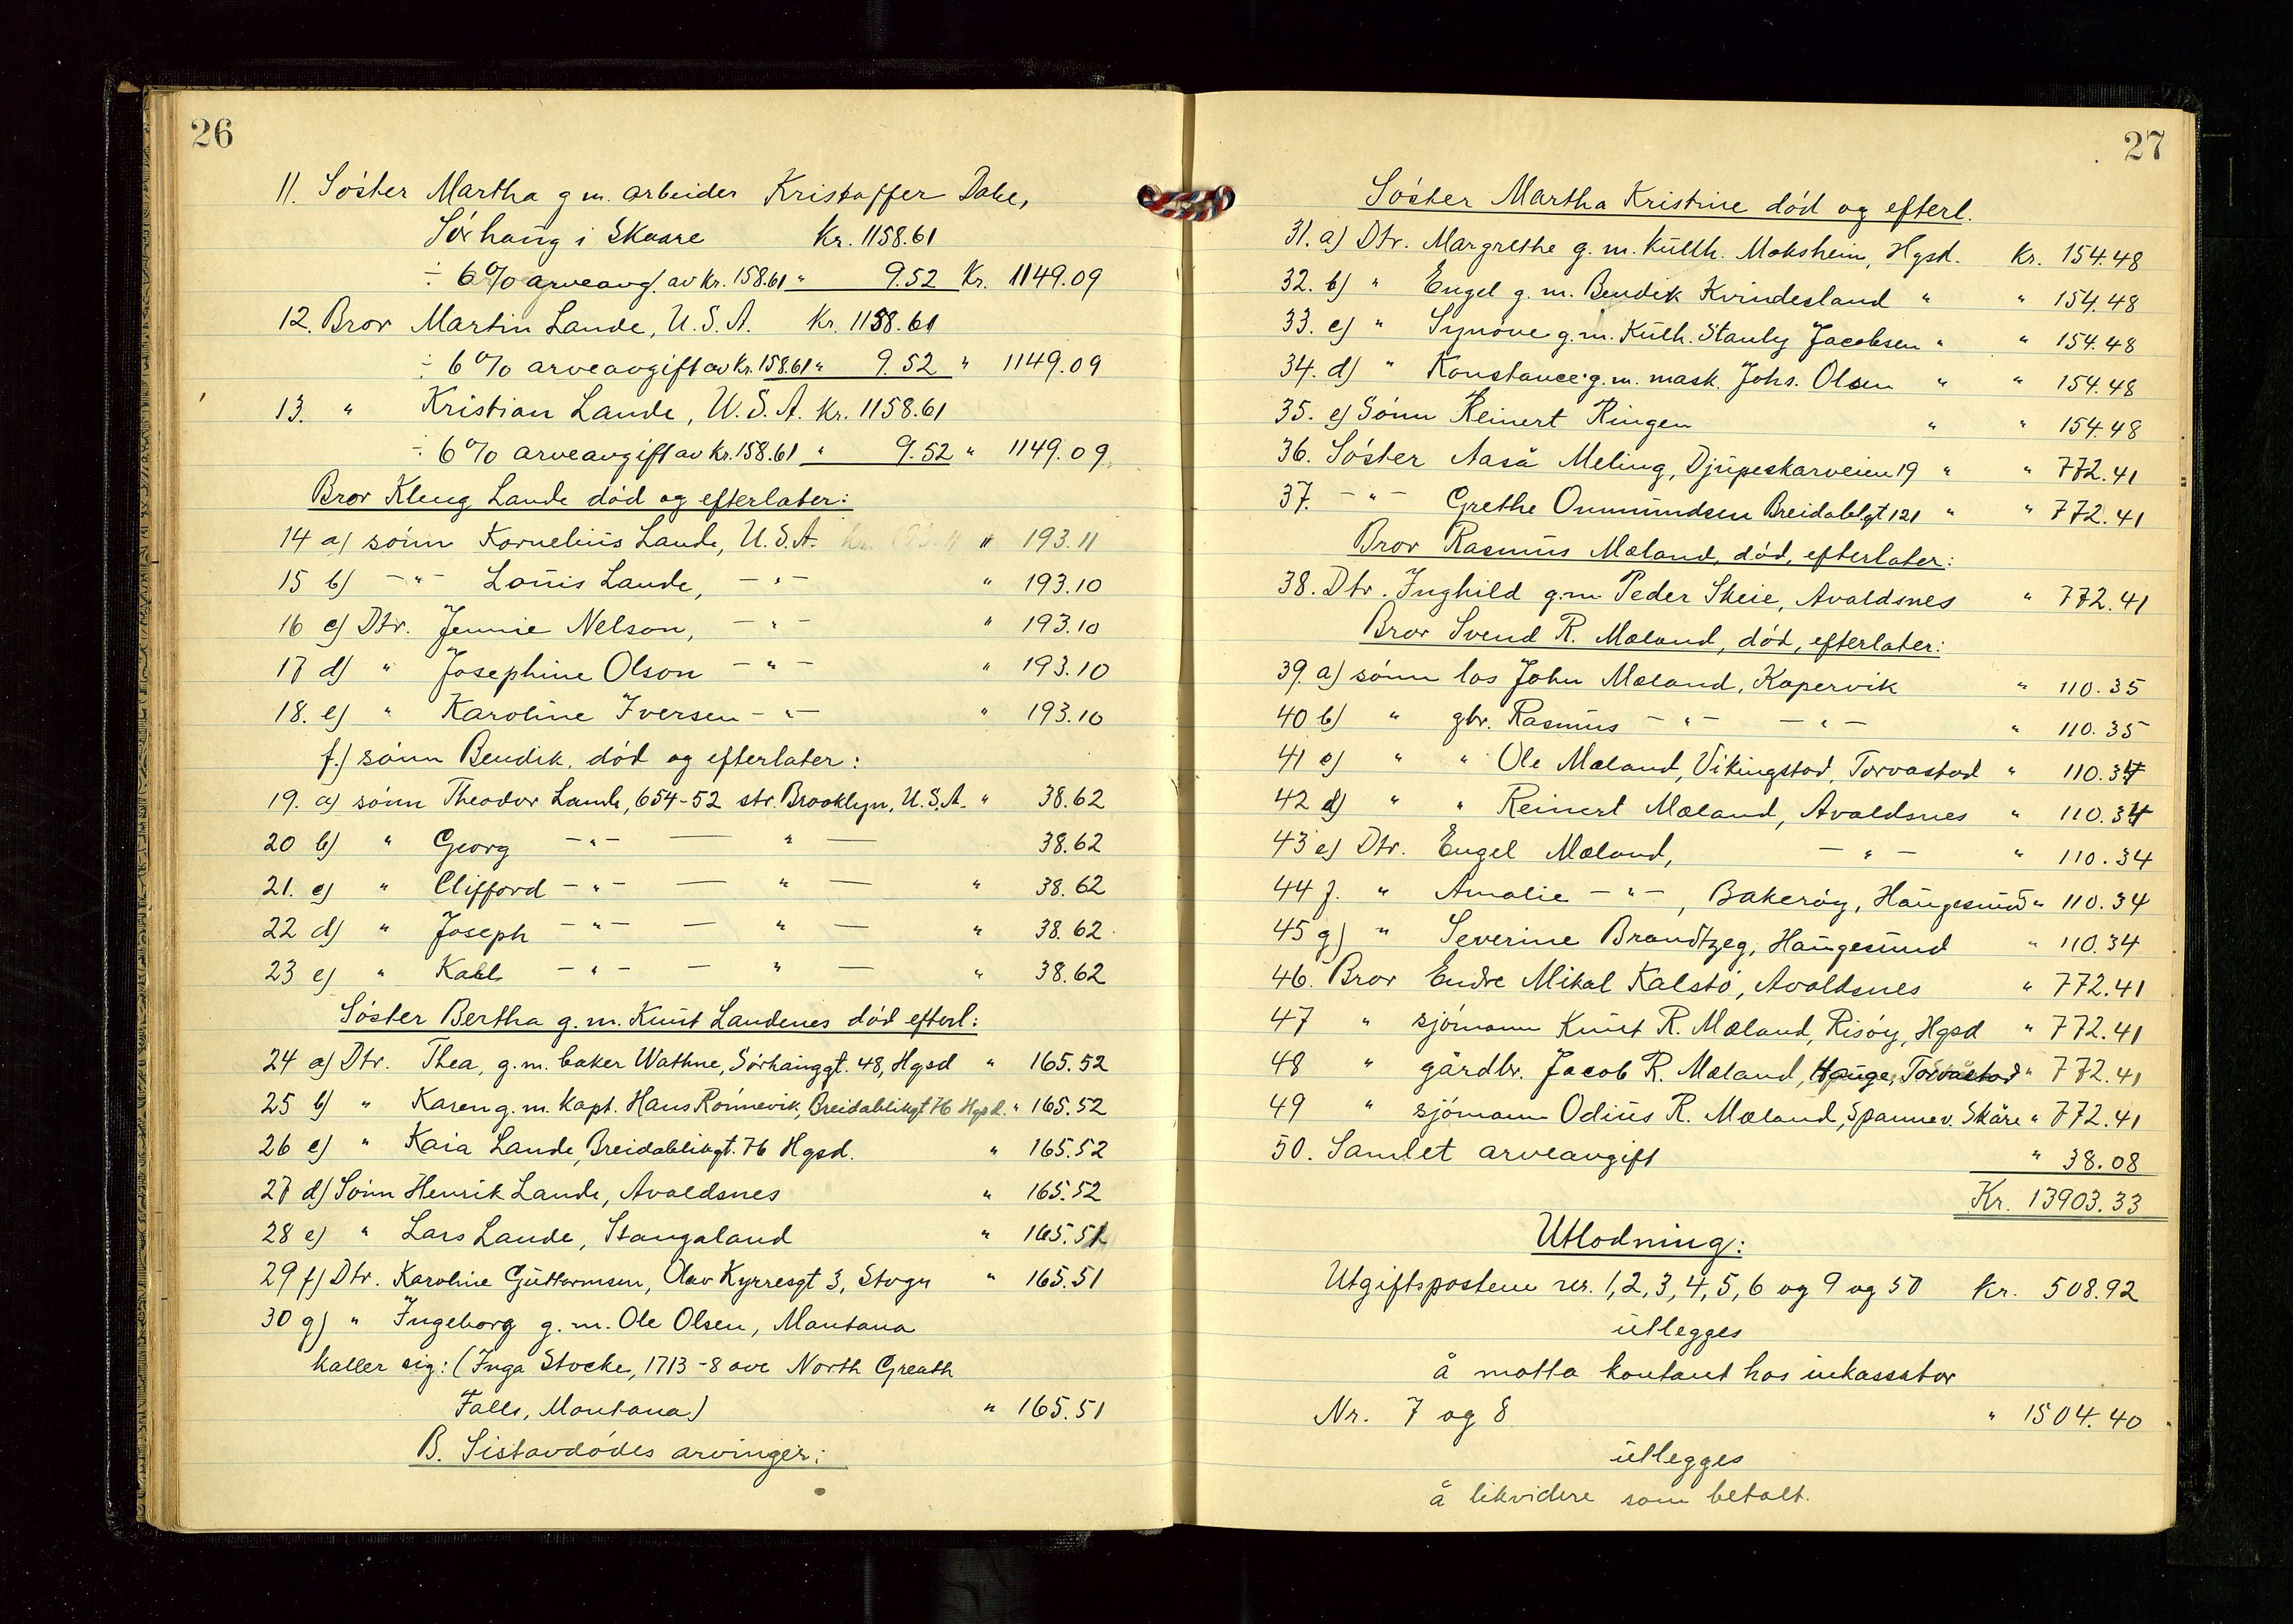 26
11. Söster Martha g m. arbeider Kristoffer Dahe,
Sörhaug i Skaare Kr. 1158.61
÷ 6% arveavg. av kr. 158.61 " 9.52 Kr. 1149.09
12. Bror Martin Lande, U.S.A. Kr. 1158.61
÷ 6% arveavgift av kr. 158.61 " 9.52 " 1149.09
13. " Kristian Lande, U.S.A. Kr. 1158.61
÷ 6% arveavgift av kr. 158.61 " 9.52 " 1149.09
Bror Kleng Lande död og efterlater:
14 a) sönn Kornelius Lande, U.S.A. " 193.11
15 b) -"- Louis Lande, -"- " 193.10
16 c) Dtr. Jennie Nelson, -"- " 193.10
17 d) " Josephine Olson -"- " 193.10
18. e) " Karoline Iversen -"- " 193.10
f.) sönn Bendik, död og efterlater:
19. a) sönn Theodor Lande, 654-52 str. Brooklyn, U.S.A. " 38.62
20 b) " Georg -"- — " — 38.62
21. c) " Clifford -"- — " — " 38.62
22 d) " Joseph -"- — " — " 38.62
23 e) " Kahl -"- — " — " 38.62
Söster Bertha g. m. Knut Landenes död efterl:
24 a) Dtr. Thea, g. m. baker Wathne, Sörhauggt. 48, Hgsd " 165.52
25 b) " Karen g. m. kapt. Hans Rönnevik, Breidablikgt 76 Hgsd. " 165.52
26 c) " Kaia Lande, Breidablikgt. 76 Hgsd. " 165.52
27 d) Sönn Henrik Lande, Avaldsnes " 165.52
28 e) " Lars Lande, Stangaland " 165.51
29 f) Dtr. Karoline Guttormsen, Olav Kyrresgt 3, Stvgr " 165.51
30 g) " Ingeborg g. m. Ole Olsen, Montana
kaller sig: (Inga Stocke, 1713-8 ave North Greath
Falls, Montana) " 165.51
B. Sistavdödes arvinger:
27
Söster Martha Kristine död og efterl.
31. a) Dtr. Margrethe g. m. kullh. Moksheim, Hgsd. Kr. 154.48
32. b) " Engel g. m. Bendik Kvindesland " " 154.48
33. c) " Synöve g. m. Kullh. Stanly Jacobsen " " 154.48
34. d) " Konstance g. m. mask. Johs. Olsen " " 154.48
35. e) Sönn Reinert Ringen " " 154.48
36. Söster Aasa Meling, Djupeskarveien 19 " " 772.41
37. -"- Grethe Ommundsen Breidablgt 121 " " 772.41
Bror Rasmus Mæland, död, efterlater:
38. Dtr. Inghild g. m. Peder Skeie, Avaldsnes " 772.41
Bror Svend R. Mæland, död, efterlater:
39. a) sönn los John Mæland, Kopervik " 110.35
40 b) " gbr. Rasmus -"- -"- " 110.35
41 c) " " Ole Mæland, Vikingstad, Torvastad " 110.34
42 d) " " Reinert Mæland, Avaldsnes " 110.34
43 e) Dtr. Engel Mæland, -"- " 110.34
44 f. " Amalie -"-, Bakeröy, Haugesund " 110.34
45 g) " Severine Brandtzeg, Haugesund " 110.34
46. Bror Endre Mikal Kalstö, Avaldsnes " 772.41
47 " sjömann Knut R. Mæland, Risöy, Hgsd " 772.41
48 " gårdbr. Jacob R. Mæland, Hauge, Torvastad " 772.41
49 " sjömann Odius R. Mæland, Spannev. Skåre " 772.41
50. Samlet arveavgift " 38.08
Kr. 13903.33
Utlodning:
Utgiftspostene nr. 1, 2, 3, 4, 5, 6 og 9 og 50 Kr. 508.92
utlegges
å motta kontant hos inkassator
Nr. 7 og 8 " 1504.40
utlegges
å likvidere som betalt.